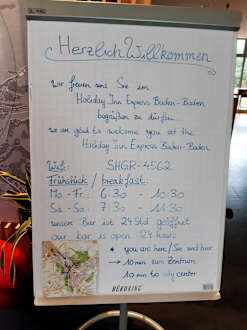 Herzlich Willkommen
Wir freuen uns Sie im
Holiday Inn Express Baden-Baden
begrüßen zu dürfen.
we are glad to welcome you at the
Holiday Inn Express Baden-Baden
Wifi: SHGR-4562
Frühstück / breakfast:
Mo - Fr: 6:30 - 10:30
Sa - So: 7:30 - 11:30
unsere Bar ist 24 Std geöffnet
our bar is open 24 hours
• you are here / Sie sind hier
→ 10 min zum Zentrum
10 min to city center